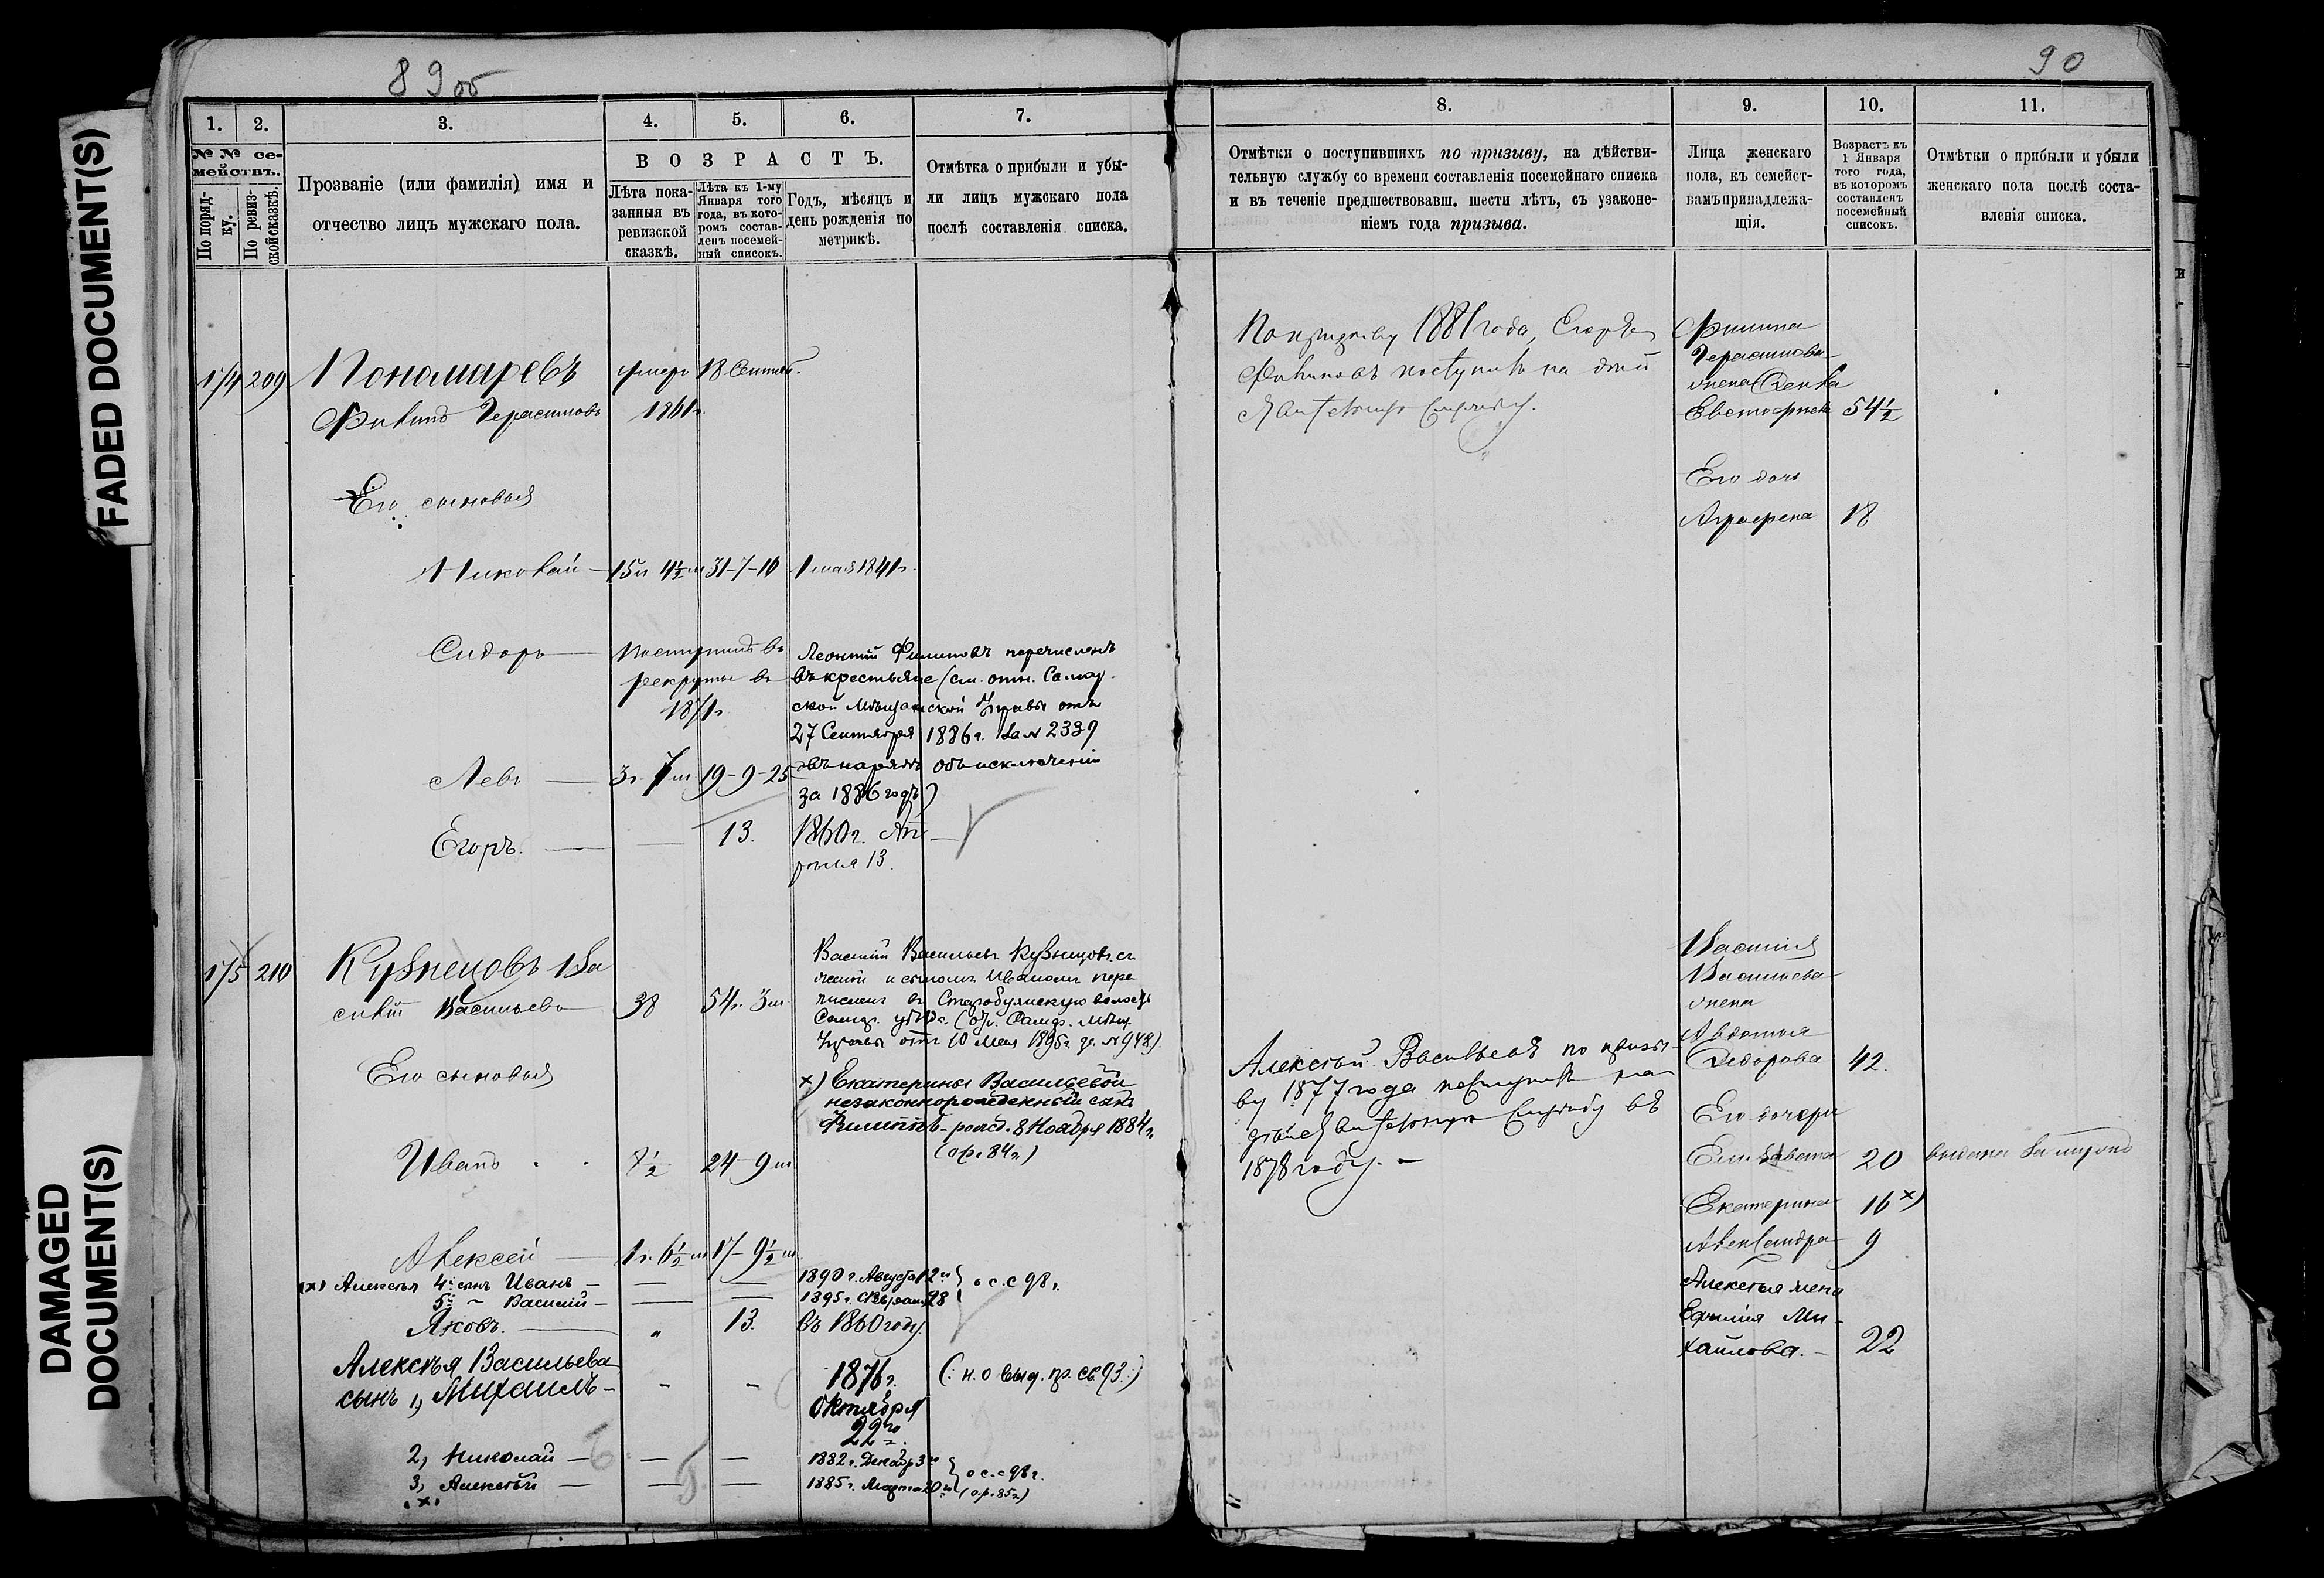 FADED DOCUMENT(S)
DAMAGED
DOCUMENT(S)
89об
1. 2. 3. 4. 5. 6. 7.
№ № се-
мействъ.
По поряд-
ку.
По ревиз-
ской сказкѣ.
Прозваніе (или фамилія) имя и
отчество лицъ мужскаго пола.
ВОЗРАСТЪ.
Лѣта пока-
занныя въ
ревизской
сказкѣ.
Лѣта къ 1-му
Января того
года, въ кото-
ромъ состав-
ленъ посемей-
ный списокъ.
Годъ, мѣсяцъ и
день рожденія по
метрикѣ.
Отмѣтка о прибыли и убы-
ли лицъ мужскаго пола
послѣ составленія списка.
174 209 Пономаревъ умеръ 18 Сентяб.
Филипъ Герасимовъ 1861г.
Его сыновья
Николай 15л 4½м 31-7-10 1 мая 1841г.
Сидоръ Поступилъ въ
рекруты въ
1871г.
Леонтій Филиповъ перечисленъ
въ крестьяне (см. отн. Самар.
ской Мѣщанской Управы отъ
27 Сентября 1886г. за № 2339
въ нарядѣ объ исключеніи
за 1886 годъ)
Левъ 3г. 7м 19-9-25
Егоръ. 13. 1860г. Ап
рѣля 13.
175 210 Кузнецовъ Ва
силій Васильевъ 38 54г. 3м
Василій Васильевъ Кузнецовъ съ
женой и сыномъ Иваномъ пере
численъ въ Старобуянскую волость
Самар. уѣзда. (отн. Самар. Мѣщ.
Управы отъ 10 Мая 1895г за № 948)
Его сыновья
х) Екатерины Васильевой
незаконнорожденный сынъ
Филиппъ - рожд. 8 Ноября 1884г.
(ар. 84г.)
Иванъ 8½ 24-9м
Алексей 1г. 6½м 17-9½м
(х) Алексѣя 4й сынъ Иванъ - 1890г. Августа 12го
5й " Василій - 1895г. Февраля 28
о с. с 98г.
Яковъ. " 13. въ 1860 году.
Алексѣя Васильева
сынъ 1, Михаилъ - - - 1876г.
Октября
22го
(: н. о выд. пр. св 93:)
2, Николай - 1882г. Декабр 3го
3, Алексѣй - 1885г. Марта 20го
о с. с 98г.
(ар. 85г.)
(х)
90
8. 9. 10. 11.
Отмѣтки о поступившихъ по призыву, на дѣйстви-
тельную службу со времени составленія посемейнаго списка
и въ теченіе предшествовавш. шести лѣтъ, съ узаконе-
ніемъ года призыва.
Лица женскаго
пола, къ семейст-
вамъ принадлежа-
щія.
Возрастъ къ
1 Января
того года,
въ которомъ
составленъ
посемейный
списокъ.
Отмѣтки о прибыли и убыли
женскаго пола послѣ соста-
вленія списка.
По призыву 1881 года, Егоръ
Филиповъ поступилъ на дѣй
ствительную службу.
Филипа
Герасимова
жена Фекла
54½
Его дочь
Аграфена 18
Алексѣй Васильевъ по призы-
ву 1877 года поступилъ на
дѣйствительную службу въ
1878 году. -
Василія
Васильева
жена
Авдотья
Федорова 42.
Его дочери
Елизавета 20 выдана въ замуж
Екатерина 16 х)
Александра 9
Алексѣя жена
Ефимія Ми-
хайлова. - 22